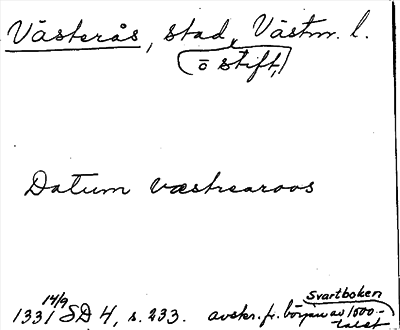 Västerås, stad, Västm. l.
o stift,
Datum væstraroos
14/9 Svartboken
1331 SD 4, s. 233. avskr. fr. början av 1500-
talet